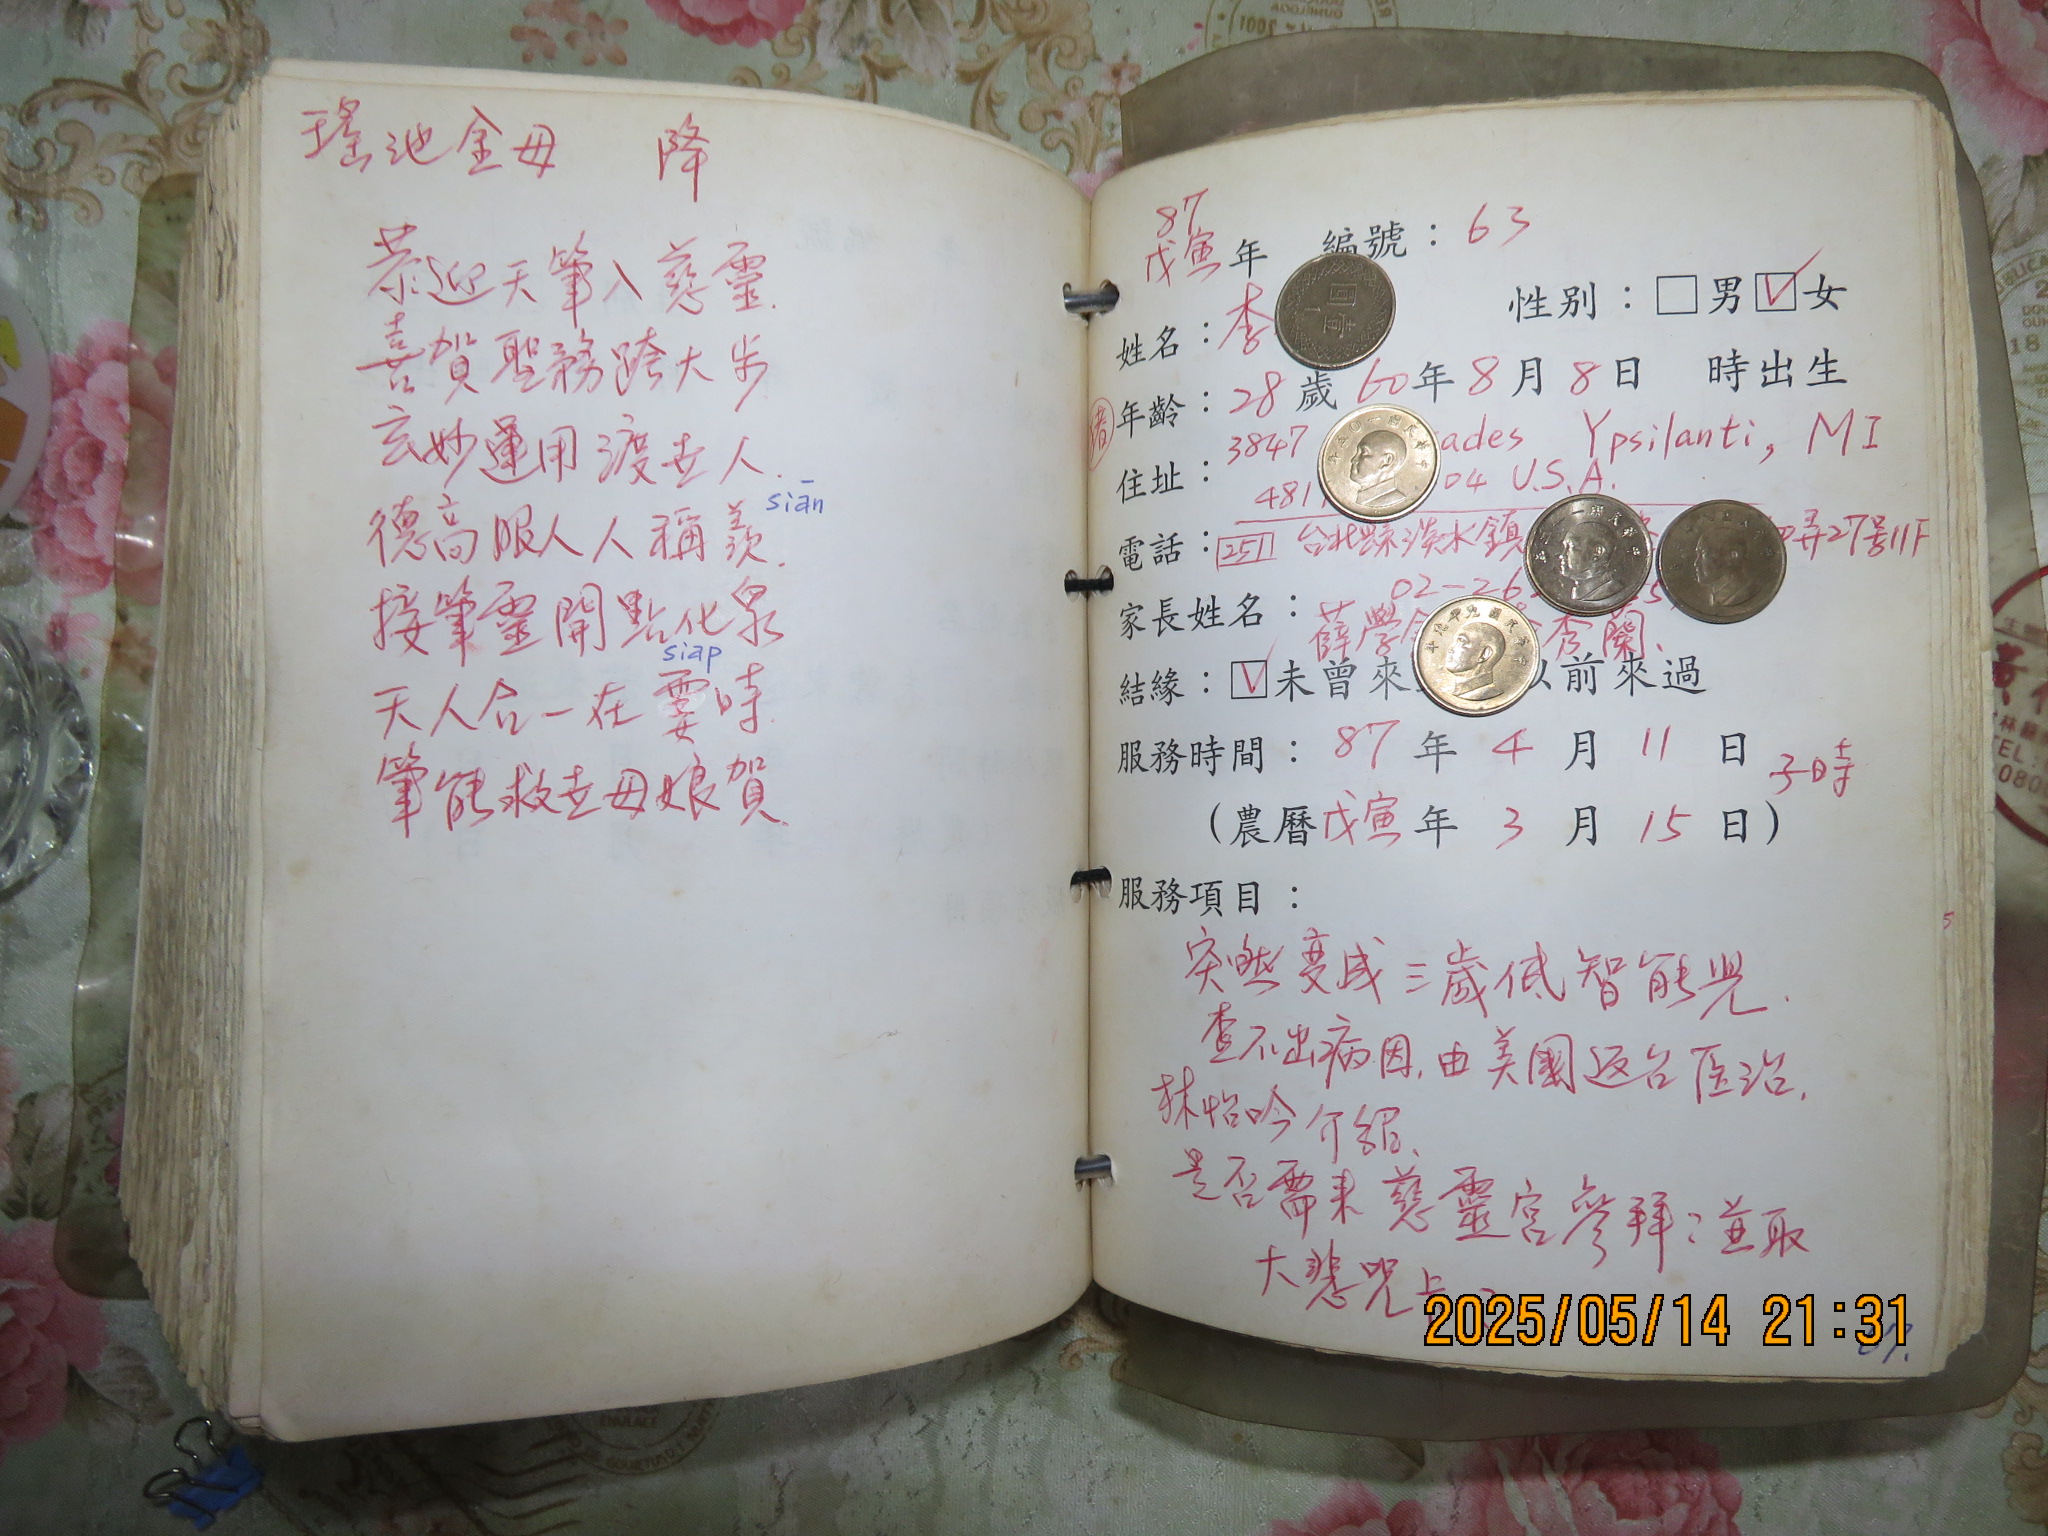 瑤池金母 降
恭迎天筆入慈靈.
喜賀聖務跨大步
玄妙運用渡世人.
siān
德高服人人稱羨.
接筆靈開點化泉
siap
天人合一在霎時
筆能救世母娘賀.
87
戊寅年 編號：63
姓名：李 性別：□男☑女
年齡：28歲 60年8月8日 時出生
豬
住址：3847 ades Ypsilanti, MI
481 04 U.S.A.
電話：251 台北縣淡水鎮 弄27号11F
02-26 5
家長姓名：薛學 秀蘭.
結緣：☑未曾來 以前來過
服務時間：87年4月11日 子時
（農曆戊寅年3月15日）
服務項目：
突然變成三歲低智能兒.
查不出病因,由美國返台医治.
林怡吟介紹.
是否需來慈靈宮參拜;並取
大悲咒
2025/05/14 21:31